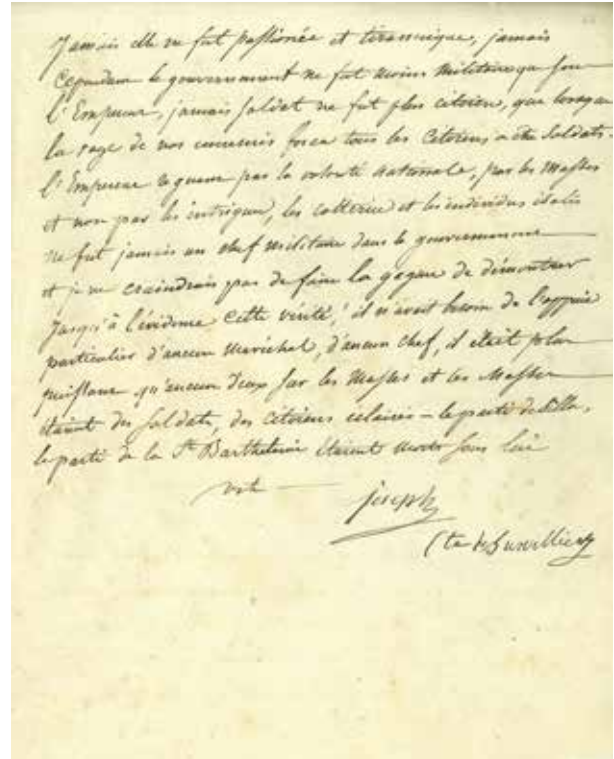 Jamais elle ne fut passionée et tirannique, jamais
Cependant le gouvernement ne fut moins militaire que sous
l'Empereur, jamais soldat ne fut plus citoien, que lorsque
la rage de nos ennemis força tous les Citoiens a être Soldats.
l'Empereur regnant par la volonté nationale, par les Masses
et non par les intrigues, les cotteries et les individus isolés
ne fut jamais un chef militaire dans le gouvernement
et je ne craindrais pas de faire la gageure de démontrer
jusqu'à l'évidence cette vérité! il n'avait besoin de l'appui
particulier d'aucun Maréchal, d'aucun chef, il était plus
puissant qu'aucun d'eux sur les Masses et les Masses
étaient des soldats, des citoiens éclairés – le parti de
le parti de la St Barthelemi étaient morts sous lui
joseph
Cte de Survilliers